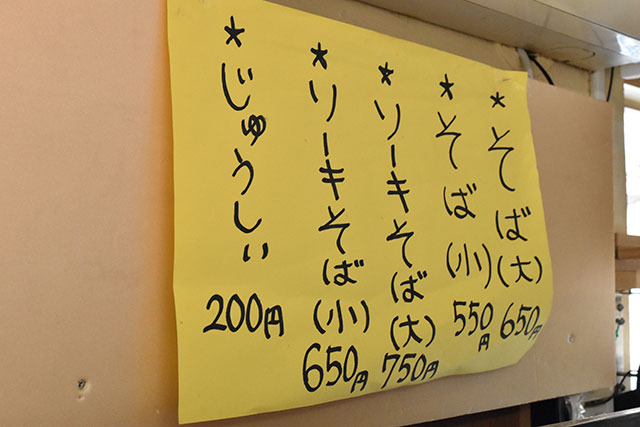 *そば(大)
650円
*そば(小)
550円
*ソーキそば(大)
750円
*ソーキそば(小)
650円
*じゅうしぃ
200円